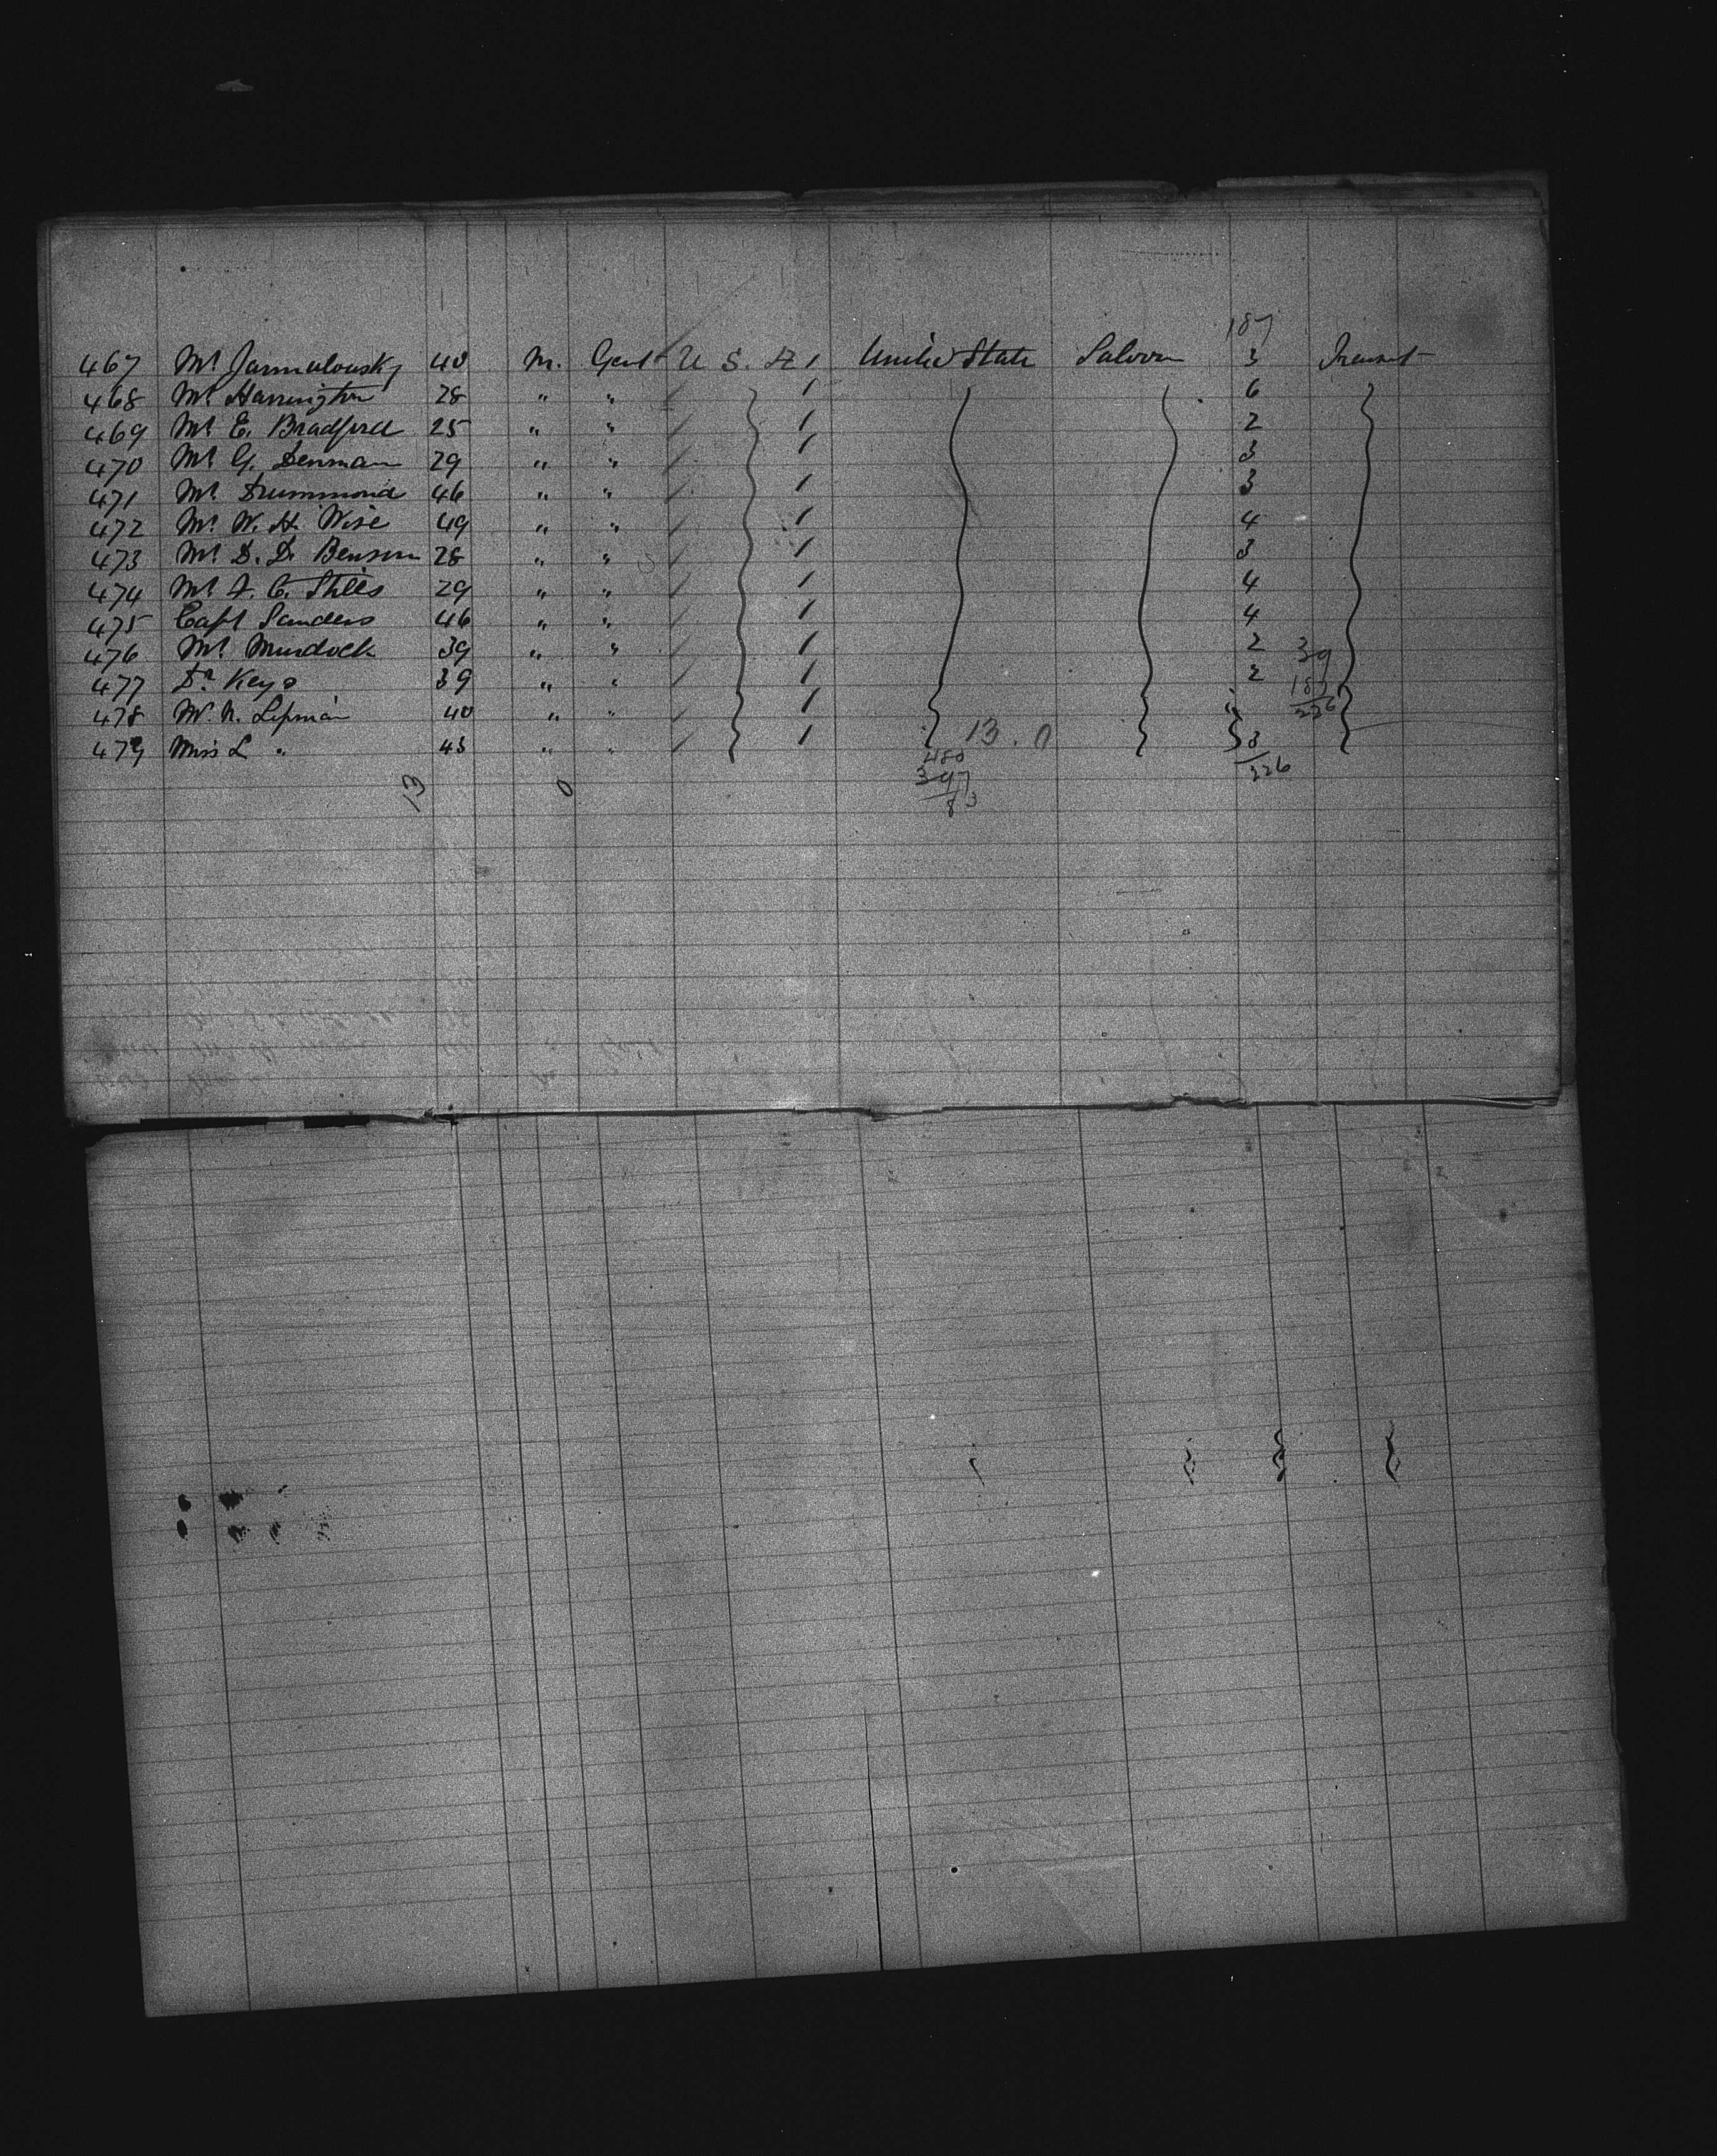 187
467 Mr Jarmulowsky 40 M. Gent U. S. A 1 United State Saloon 3 Transit
468 Mr Harrington 28 " " 1 6
469 Mr E. Bradford 25 " " 1 2
470 Mr G. Denman 29 " " 1 3
471 Mr Drummond 46 " " 1 3
472 Mr W. H. Wise 49 " " 1 4
473 Mr D. D. Benson 28 " " 1 3
474 Mr A. C. Stiles 29 " " 1 4
475 Capt Sanders 46 " " 1 4
476 Mr Murdock 39 " " 1 2 39
477 Dr Keys 39 " " 1 2 187
478 Mr N. Lipman 40 " " 1 226
479 Miss L " 43 " " 1 13.0 3
480 226
13 0 397
83